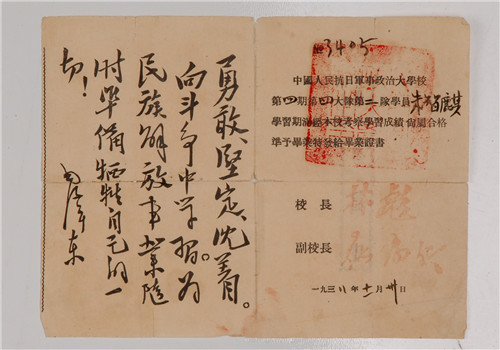 勇敢、堅定、沈着。
向斗争中学習。为
民族解放事業随
时準備犧牲自己的一
切！
毛澤东
3405
中國人民抗日軍事政治大學校
第四期第四大隊第二隊學員朱
學習期滿經本校考察學習成績尚屬合格
準予畢業特發給畢業證書
校長 林彪
副校長
一九三八年十月卅日